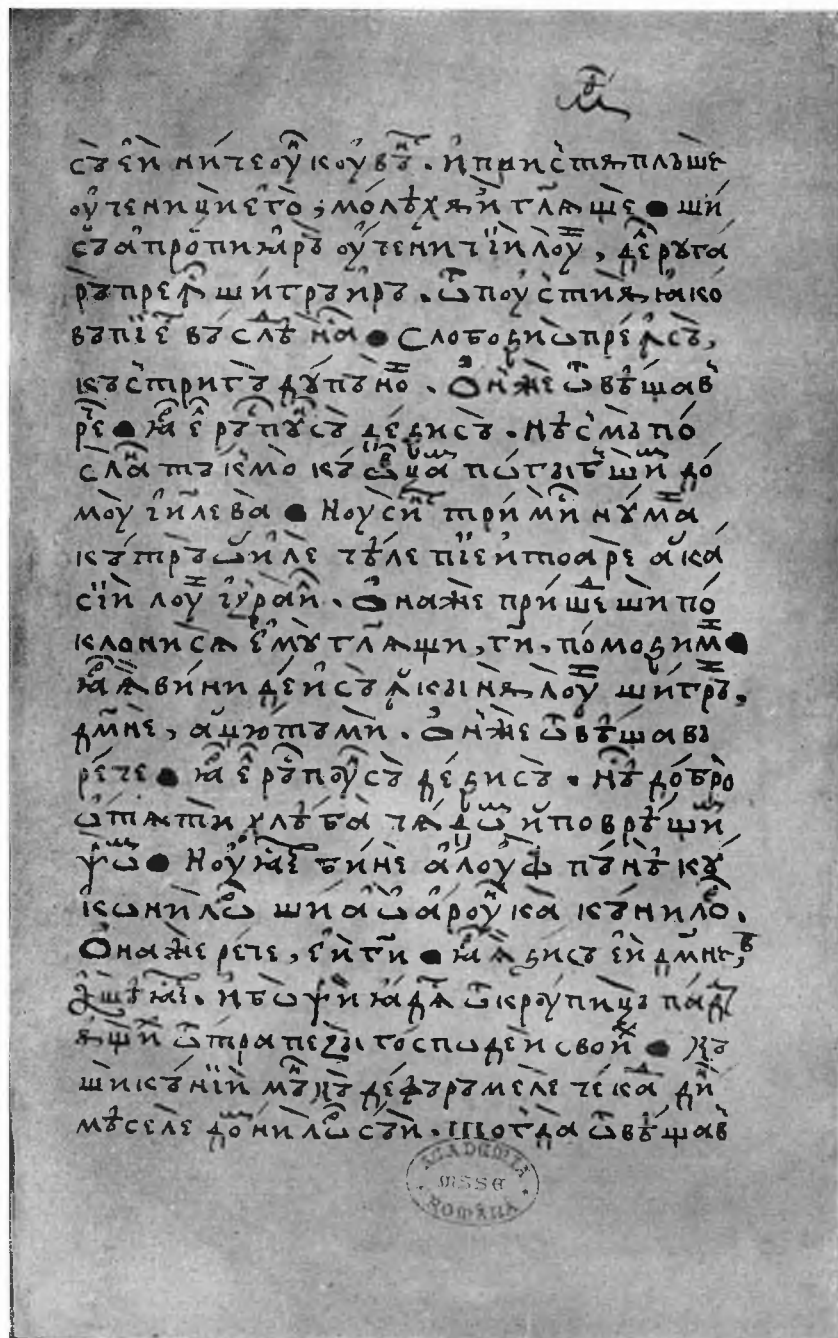 м҃
съ ей ни чеꙋ҆ кꙋвъⷩ҇. и҆ пристѫпльше
ꙋ҆ченици е҆го, молѣхѫ и҆ гл҃ѫще ● ши
съ апропиѧръ ꙋ҆ченичїи лꙋй, де рꙋга
ръ пре ꙟⷧ҇ ши гръиръ. ѿпꙋсти ѫ, ꙗко
въпїеⷮ въслѣⷣ наⷭ҇ ● слободи ѡ пре ꙟсъ,
къ стригъ дꙋпъ нои. Онже ѿвѣщавь
реⷱ҇ ● ꙗⷬ҇ еⷧ҇ ръⷭ҇пꙋⷩ҇съ де ѕисъ. нѣсмъ по
слаⷩ тъкмо къ ѡвцаⷨ погыбшиⷨ до
мꙋ ї҆илева ● Нꙋ сиⷩ тримиⷭ҇ нꙋмаи
кътръ ѡиле чѣле пїеитоаре а каⷭ
сїи лꙋй ї҆зраиⷧ. Онаже пришеⷣши по
клонисѧ емꙋ гл҃ѫщи, г҃и, помоѕи ми ●
ꙗⷬ҇ ѣ вини де и҆съ ꙟкынѫ лꙋй ши гръи,
дм҃не, ацютъ ми. Онже ѿвѣщавь
рече ● ꙗⷬ҇ еⷧ҇ ръⷭ҇пꙋⷩсъ де ѕисъ. нѣⷭ҇ добро
ѿѧти хлѣба чѧдѡⷨ и҆ поврѣщи
ѱѡⷨ ● Нꙋ ꙗⷭ҇те бине а лꙋа пъинѣ кꙋ
коонилѡрь ши а ѡ арꙋнка кънилѡрь.
Онаже рече, ей г҃и ● ꙗⷬ҇ ꙗ ѕисъ ей дм҃не,
ꙗшѣ ꙗⷭ҇те. ибо ѱи ꙗдѧⷮ ѿ крꙋпицъ пада
ѫщиⷯ ѿ трапезы господей своиⷯ ● къ
ши кънїи мънѫнкъ де фъръмеле че каⷣ диⷩ
мѣселе домнилѡрь съй. Тогда ѿвѣщавь
ACADEMIA
MSSE
ROMÂNĂ